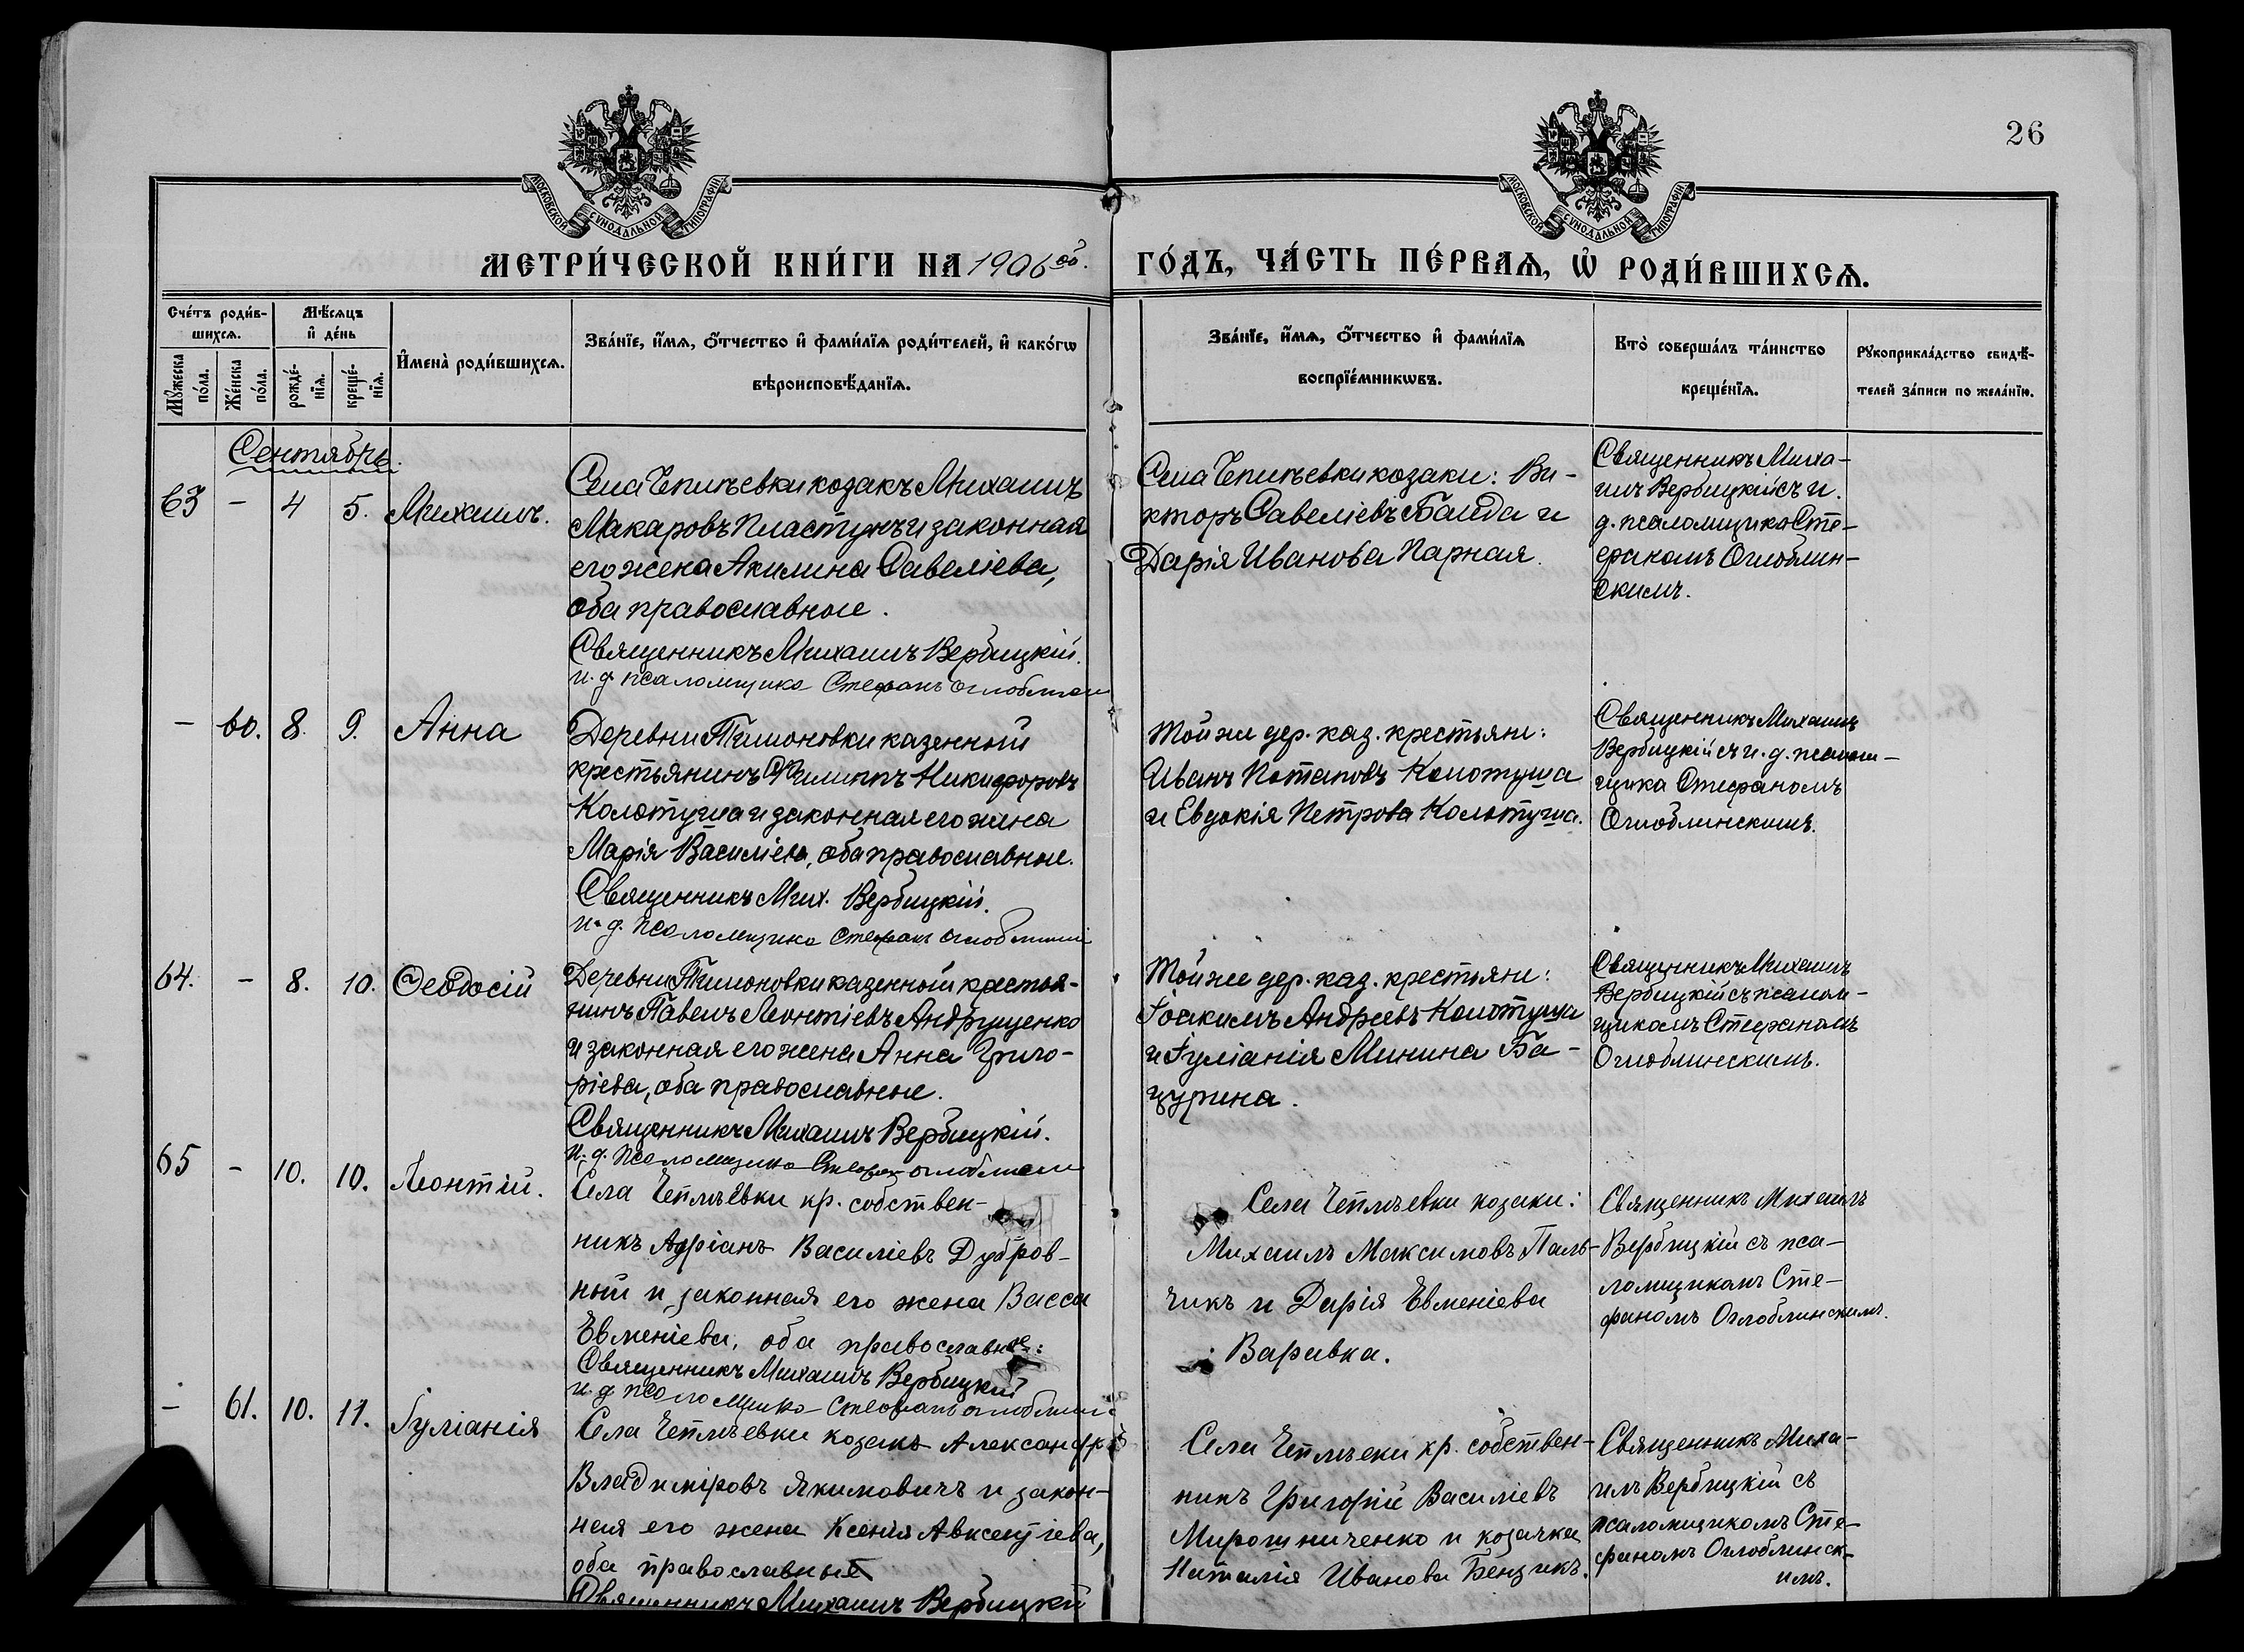 26
МОСКОВСКОЙ СѴНОДАЛЬНОЙ ТИПОГРАФІИ
МОСКОВСКОЙ СѴНОДАЛЬНОЙ ТИПОГРАФІИ
МЕТРИ́ЧЕСКОЙ КНИ́ГИ НА 1906 ой. ГО́ДЪ, ЧА́СТЬ ПЕ́РВАѦ, Ѡ҆ РОДИ́ВШИХСѦ.
Сче́тъ роди́в-
шихсѧ.
Мꙋ́жеска по́ла.
Же́нска по́ла.
Мѣ́сѧцъ
и҆ де́нь
рожде́-
нїѧ.
креще́-
нїѧ.
И҆мена̀ роди́вшихсѧ.
Зва́нїе, и҆́мѧ, ѻ҆́тчество и҆ фами́лїѧ роди́телей, и҆ како́гѡ
вѣроисповѣ́данїѧ.
Зва́нїе, и҆́мѧ, ѻ҆́тчество и҆ фами́лїѧ
воспрїе́мникѡвъ.
Кто̀ соверша́лъ та́инство
креще́нїѧ.
Рꙋкоприкла́дство свидѣ́-
телей за́писи по жела́нїю.
Сентябрь.
63 - 4 5. Михаилъ.
Села Чепилѣевки козакъ Михаилъ
Макаровъ Пластунъ и законная
его жена Акилина Савеліева,
оба православные.
Священникъ Михаилъ Вербицкій.
и. д. псаломщика Стефанъ
Села Чепилѣевки козаки: Ви-
кторъ Савеліевъ Байда и
Дарія Иванова Парная.
Священникъ Миха-
илъ Вербицкій съ и.
д. псаломщика Сте-
фаномъ Оглоблин-
скимъ.
- 60. 8. 9. Анна
Деревни Тимоновки казенный
крестьянинъ Филиппъ Никифоровъ
Колотуша и законная его жена
Марія Василіева, оба православные.
Священникъ Мих. Вербицкій.
и. д. псаломщика Стефанъ
Той же дер. каз. крестьяне:
Иванъ Потаповъ Колотуша
и Евдокія Петрова Колотуша.
Священникъ Михаилъ
Вербицкій съ и. д. псалом-
щика Стефаномъ
Оглоблинскимъ.
64. - 8. 10. Ѳеодосій
Деревни Тимоновки казенный крестья-
нинъ Павелъ Леонтіевъ Андрущенко
и законная его жена Анна Григо-
ріева, оба православные.
Священникъ Михаилъ Вербицкій.
и. д. псаломщика Стефанъ
Той же дер. каз. крестьяне:
Іоакимъ Андреевъ Колотуша
и Іуліанія Минина Ба-
цурина.
Священникъ Михаилъ
Вербицкій съ псалом-
щикомъ Стефаномъ
Оглоблинскимъ.
65 - 10. 10. Леонтій.
Села Чепилѣевки кр. собствен-
никъ Адріанъ Василіевъ Дубров-
ный и законная его жена Васса
Евменіева, оба православные:
Священникъ Михаилъ Вербицкій
и. д. псаломщика Стефанъ
Села Чепилѣевки козаки:
Михаилъ Максимовъ Паль-
чикъ и Дарія Евменіева
Варавка.
Священникъ Михаилъ
Вербицкій съ пса-
ломщикомъ Сте-
фаномъ Оглоблинскимъ.
- 61. 10. 11. Іуліанія
Села Чепилѣевки козакъ Александръ
Владиміровъ Якимовичъ и закон-
ная его жена Ксенія Авксентіева,
оба православные
Священникъ Михаилъ Вербицкій
Села кр. собствен-
никъ Григорій Василіевъ
Мирошниченко и козачка
Наталія Иванова Бендикъ.
Священникъ Миха-
илъ Вербицкій съ
псаломщикомъ Сте-
фаномъ Оглоблинск-
имъ.